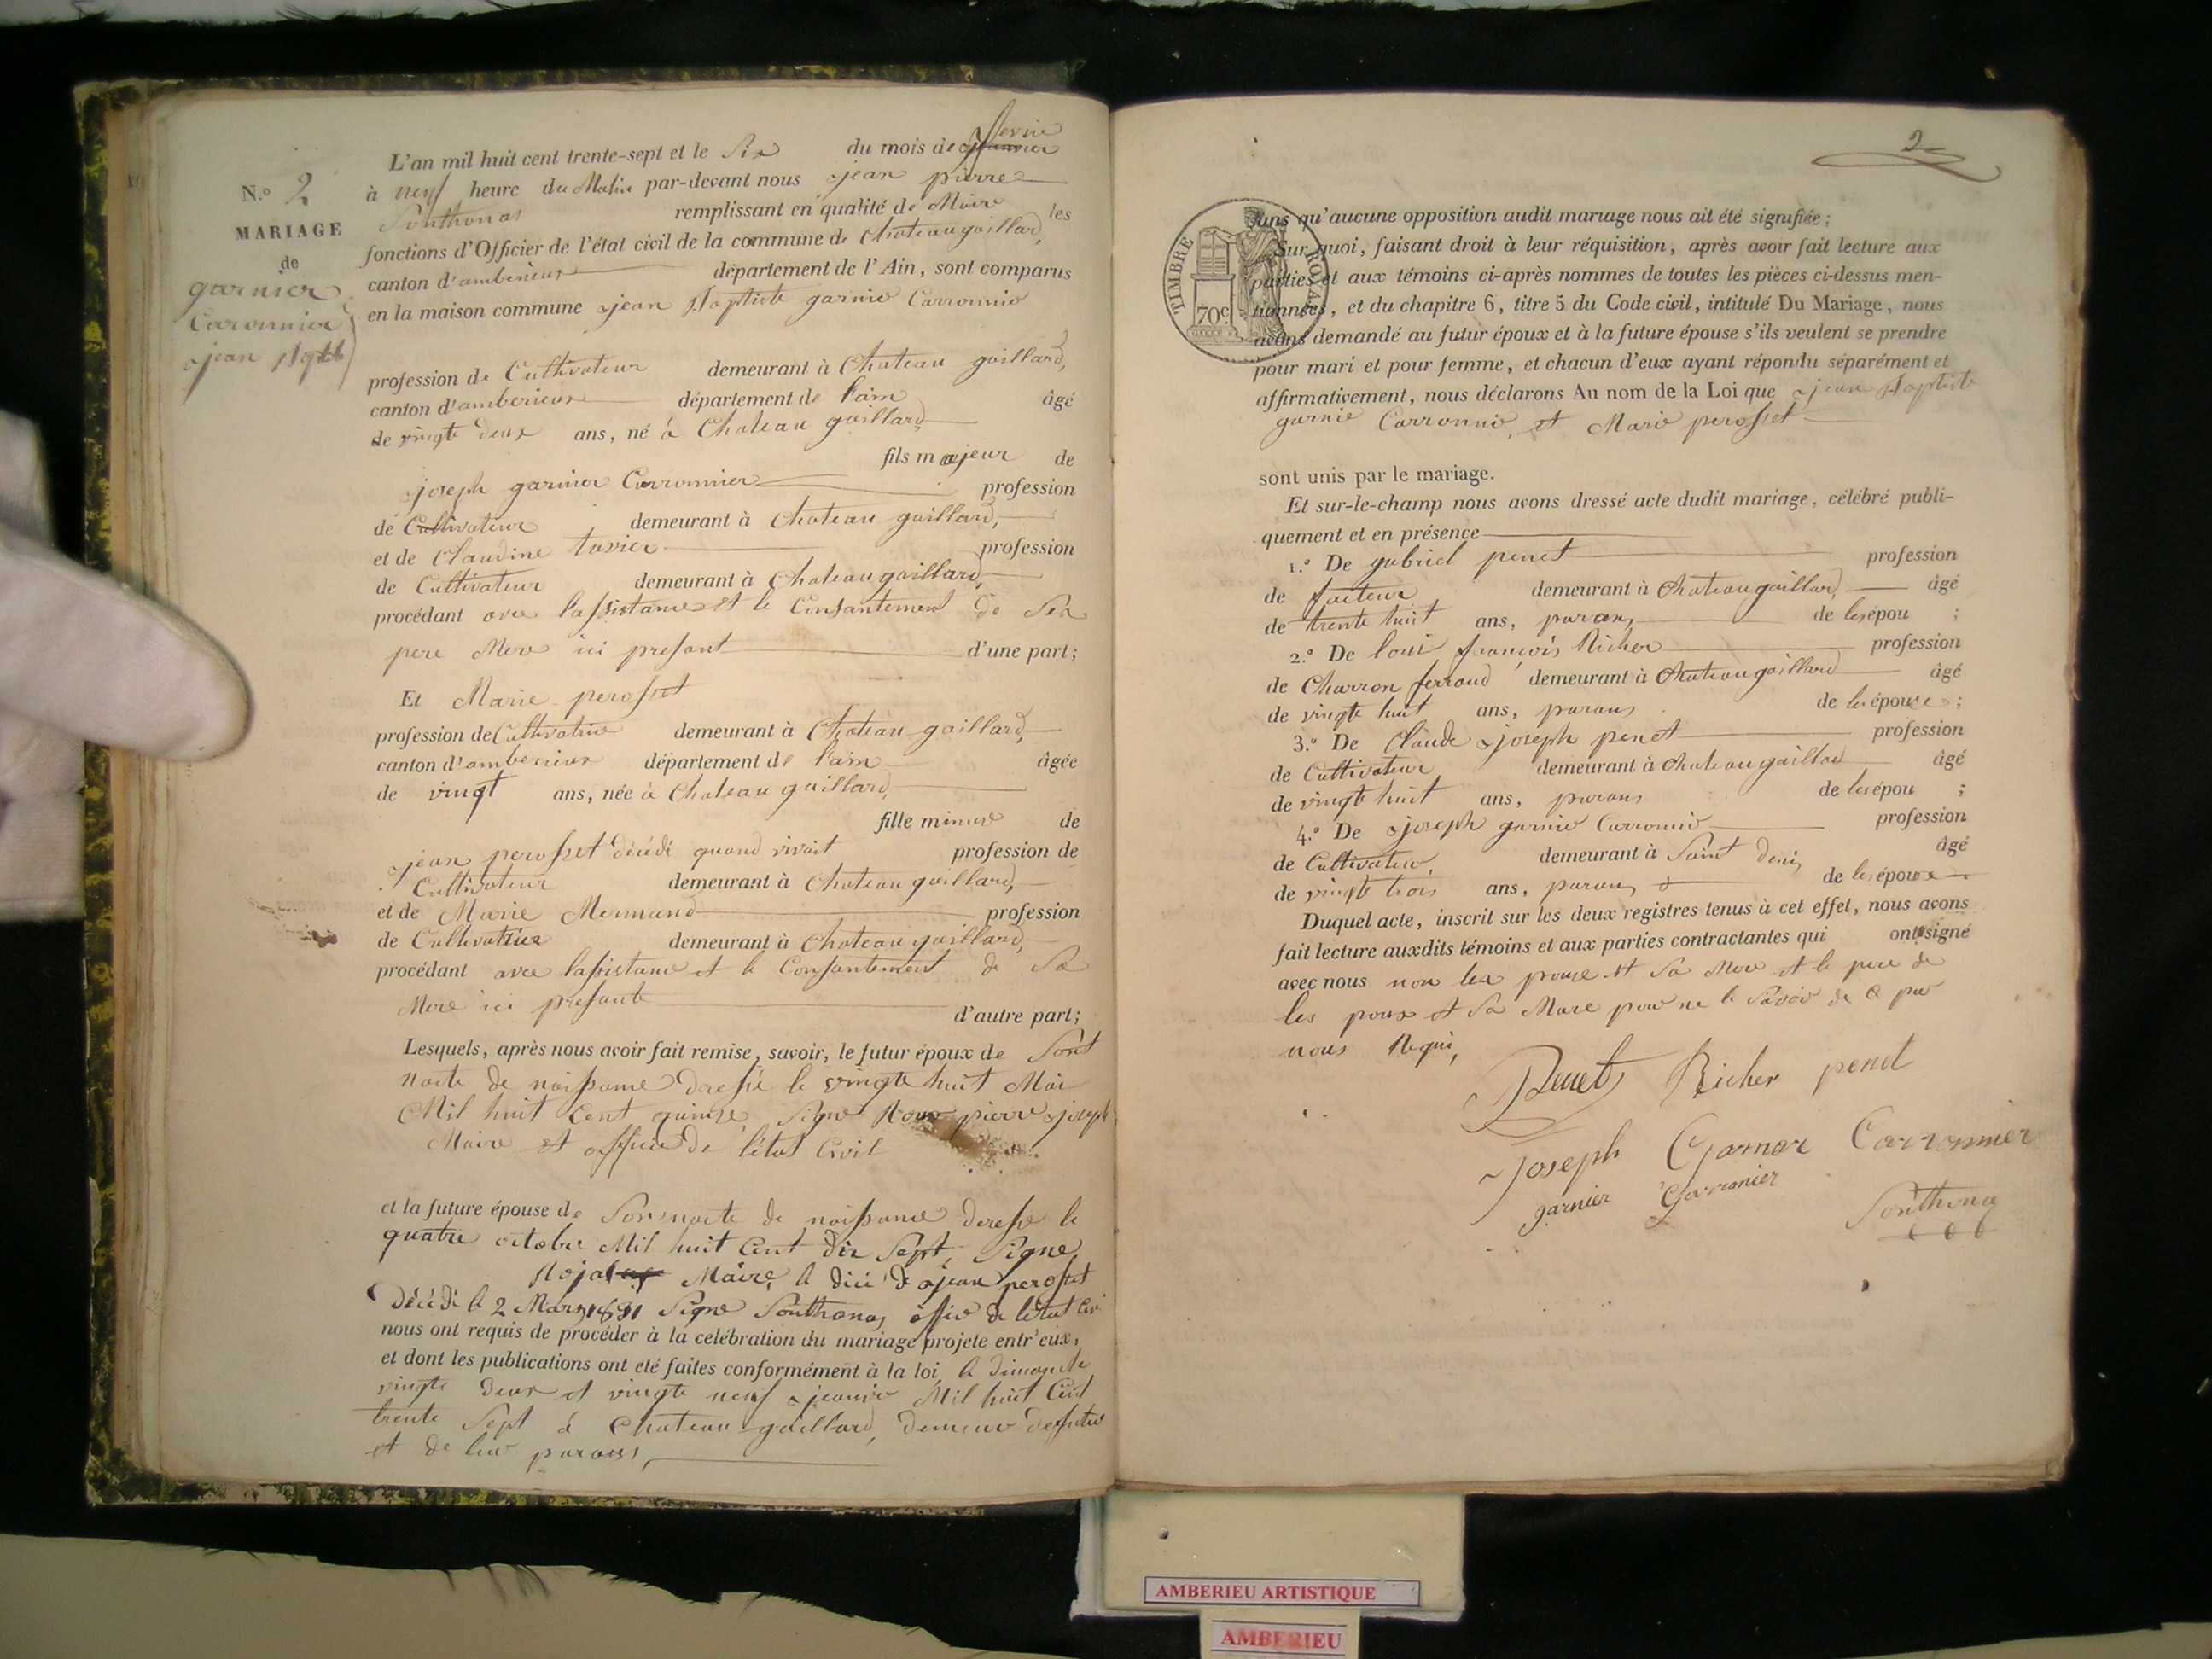 N.º 2
MARIAGE
de
garnier
Carronnier
jean Baptiste
L'an mil huit cent trente-sept et le Six du mois de janvier fevrie
à neuf heure du Matin par-devant nous jean pierre
Southonas remplissant en qualité de Maire les
fonctions d'Officier de l'état civil de la commune de Chateaugaillard,
canton d'amberieux département de l'Ain, sont comparus
en la maison commune jean Baptiste garnie Carronnie
profession de Cultivateur demeurant à Chateau gaillard,
canton d'amberieux département de lain âgé
de vingte deux ans, né à Chateau gaillard
fils majeur de
joseph garnier Carronnier profession
de Cultivateur demeurant à Chateau gaillard,
et de Claudine tavier profession
de Cultivateur demeurant à Chateau gaillard,
procédant avec lassistance et le Consantement de Ses
pere Mere ici presant d'une part;
Et Marie perosset
profession de Cultivatrice demeurant à Chateau gaillard,
canton d'amberieux département de lain âgée
de vingt ans, née à Chateau gaillard,
fille mineure de
jean perosset décédé quand vivait profession de
Cultivateur demeurant à Chateau gaillard,
et de Marie Mermand profession
de Cultivatrice demeurant à Chateau gaillard,
procédant avec lassistance et le Consantement de Sa
Mere ici presante d'autre part;
Lesquels, après nous avoir fait remise, savoir, le futur époux de Sont
nacte de naissance dressé le vingte huit Mai
Mil huit Cent quinze, Signe pierre joseph
Maire et officie de l'état Civil
et la future épouse de Son nacte de naissance dresse le
quatre octobre Mil huit Cent dix Sept, Signe
Maire, le dicé de jean perosset
Décédé le 2 Mars 1831 Signe Southonas offie de létat Civi
nous ont requis de procéder à la celébration du mariage projete entr'eux,
et dont les publications ont eté faites conformément à la loi, le dimanche
vingte deux et vingte neuf jeanvie Mil huit Cent
trente Sept à Chateau gaillard, demeure
et de leur parans,
2
TIMBRE ROYAL
70c
sans qu'aucune opposition audit mariage nous ait été signifiée;
Sur quoi, faisant droit à leur réquisition, après avoir fait lecture aux
parties et aux témoins ci-après nommes de toutes les pièces ci-dessus men-
tionnées, et du chapitre 6, titre 5 du Code civil, intitulé Du Mariage, nous
avons demandé au futur époux et à la future épouse s'ils veulent se prendre
pour mari et pour femme, et chacun d'eux ayant répondu séparément et
affirmativement, nous déclarons Au nom de la Loi que jean Baptiste
garnie Carronnie, et Marie perosset
sont unis par le mariage.
Et sur-le-champ nous avons dressé acte dudit mariage, célébré publi-
quement et en présence
1.º De gabriel penet profession
de facteur demeurant à Chateaugaillard, âgé
de trente huit ans, parans de les épou ;
2.º De loui françois Richer profession
de Charron ferrand demeurant à Chateaugaillard âgé
de vingte huit ans, parans de les épouse ;
3.º De Claude joseph penet profession
de Cultivateur demeurant à Chateaugaillad âgé
de vingte huit ans, parans de les épou ;
4.º De joseph garnie Carronnie profession
de Cultivateur, demeurant à Saint Denis âgé
de vingte trois ans, parans de les épouse
Duquel acte, inscrit sur les deux registres tenus à cet effet, nous avons
fait lecture auxdits témoins et aux parties contractantes qui ont signé
avec nous non les pouse et Sa Mere et le pere de
les poux et Sa Mere pour ne le Savoir de par
nous Requi,
Penet Richer penet
Joseph Garner Carronnier
garnier Garronier
Southonas
AMBERIEU ARTISTIQUE
AMBERIEU